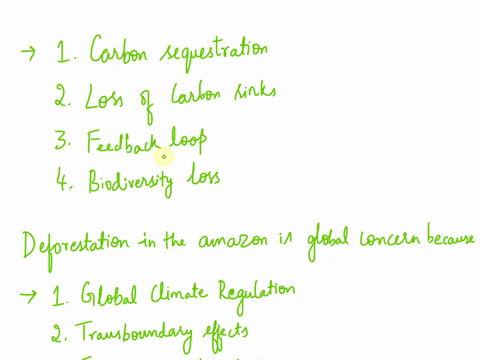 → 1. Carbon sequestration
2. Loss of Carbon sinks
3. Feedback loop
4. Biodiversity loss
Deforestation in the amazon is global concern because
→ 1. Global Climate Regulation
2. Transboundary effects